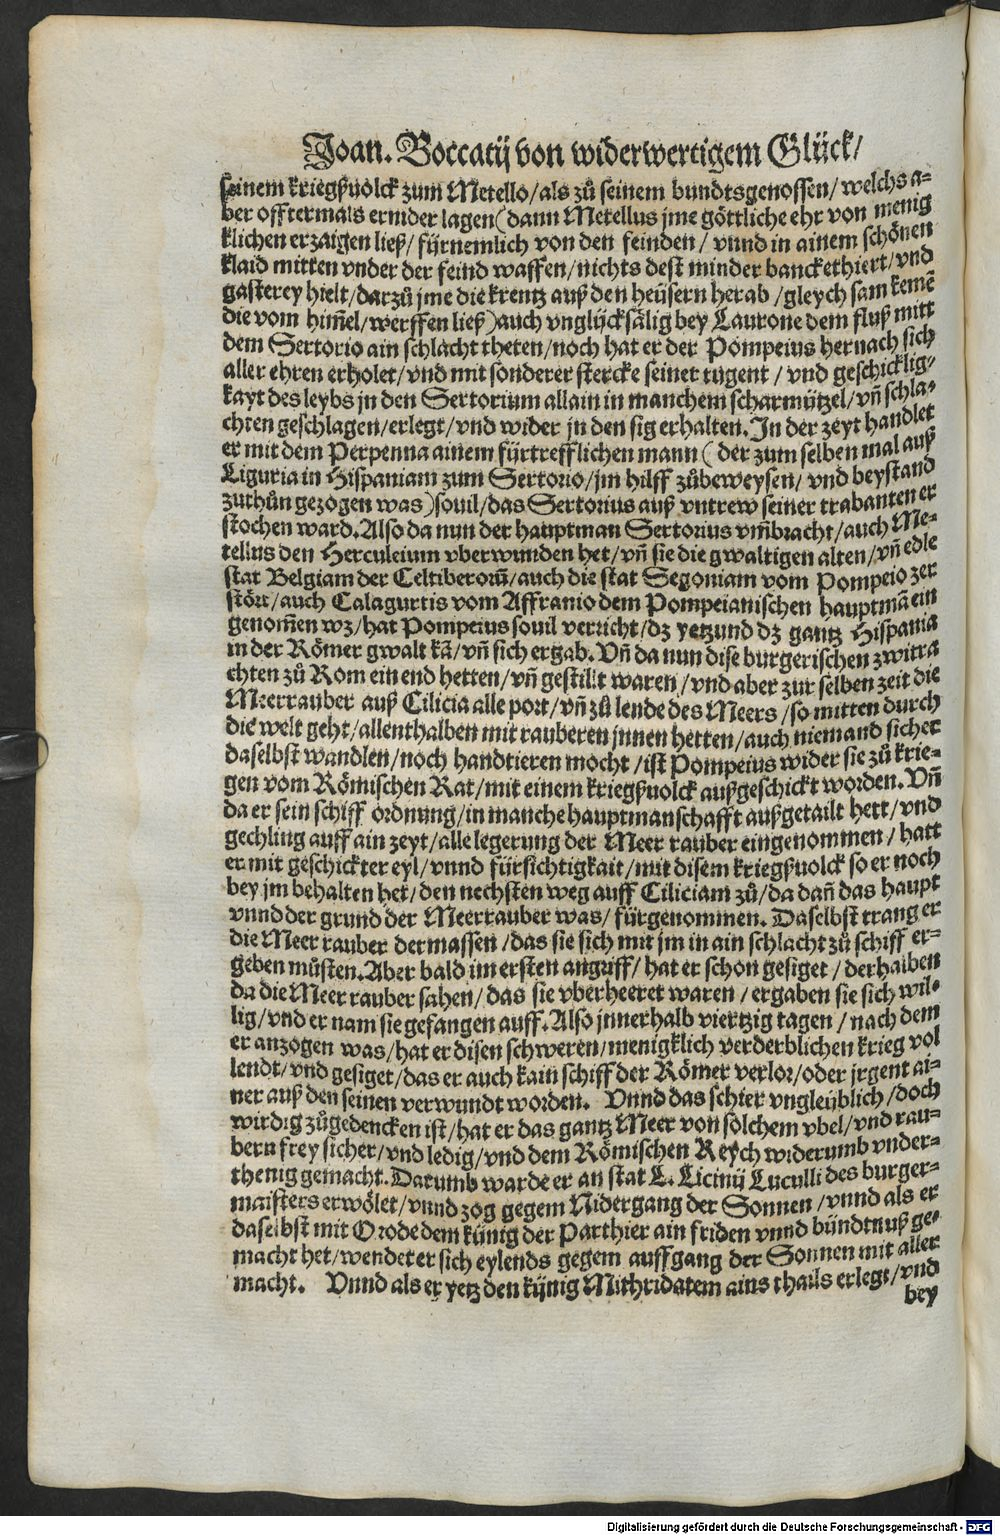 Joan. Boccatij von widerwertigem Glück/
seinem kriegßuolck zum Metello/als zů seinem bundtsgenossen/welchs a-
ber offtermals ernider lagen(dann Metellus jme göttliche ehr von menig
klichen erzaigen ließ/fürnemlich von den feinden/vnnd in ainem schönen
klaid mitten vnder der feind waffen/nichts dest minder banckethiert/vnd
gasterey hielt/darzů jme die krentz auß den heüsern herab/gleych sam kemē
die vom him̃el/werffen ließ)auch vnglücksälig bey Laurone dem fluß mitt
dem Sertorio ain schlacht theten/noch hat er der Pompeius hernach sich
aller ehren erholet/vnd mit sonderer stercke seiner tugent/vnd geschicklig-
kayt des leybs jn den Sertorium allain in manchem scharmützel/vñ schla-
chten geschlagen/erlegt/vnd wider jn den sig erhalten. In der zeyt handlet
er mit dem Perpenna ainem fürtrefflichen mann(der zum selben mal auß
Liguria in Hispaniam zum Sertorio/jm hilff zůbeweysen/vnd beystand
zuthůn gezogen was)souil/das Sertorius auß vntrew seiner trabanten er
stochen ward. Also da nun der hauptman Sertorius vm̃bracht/auch Me-
tellus den Herculeium vberwunden het/vñ sie die gwaltigen alten/vñ edle
stat Belgiam der Celtiberorũ/auch die stat Segoniam vom Pompeio zer
stört/auch Calagurtis vom Affranio dem Pompeianischen hauptmā ein
genom̃en wz/hat Pompeius souil verricht/dz yetzund dz gantz Hispania
in der Römer gwalt kā/vñ sich ergab. Vñ da nun dise burgerischen zwitra
chten zů Rom ein end hetten/vñ gestillt waren/vnd aber zur selben zeit die
Meerrauber auß Cilicia alle port/vñ zů lende des Meers/so mitten durch
die welt geht/allenthalben mit rauberen jnnen hetten/auch niemand sicher
daselbst wandlen/noch handtieren mocht/ist Pompeius wider sie zů krie-
gen vom Römischen Rat/mit einem kriegßuolck außgeschickt worden. Vñ
da er sein schiff ordnung/in manche hauptmanschafft außgetailt hett/vnd
gechling auff ain zeyt/alle legerung der Meer rauber eingenommen/hatt
er mit geschickter eyl/vnnd fürsichtigkait/mit disem kriegßuolck so er noch
bey jm behalten het/den nechsten weg auff Ciliciam zů/da dañ das haupt
vnnd der grund der Meerrauber was/fürgenommen. Daselbst trang er
die Meer rauber dermassen/das sie sich mit jm in ain schlacht zů schiff er-
geben můsten. Aber bald im ersten angriff/hat er schon gesiget/derhalben
da die Meer rauber sahen/das sie vberheeret waren/ergaben sie sich wil-
lig/vnd er nam sie gefangen auff. Also jnnerhalb viertzig tagen/nach dem
er anzogen was/hat er disen schweren/menigklich verderblichen krieg vol
lendt/vnd gesiget/das er auch kain schiff der Römer verlor/oder jrgent ai-
ner auß den seinen verwundt worden. Vnnd das schier vngleüblich/doch
wirdig zůgedencken ist/hat er das gantz Meer von solchem vbel/vnd rau-
bern frey sicher/vnd ledig/vnd dem Römischen Reych widerumb vnder-
thenig gemacht. Darumb warde er an stat L. Licinij Luculli des burger-
maisters erwölet/vnnd zog gegem Nidergang der Sonnen/vnnd als er
daselbst mit Orode dem künig der Parthier ain friden vnnd bündtnuß ge-
macht het/wendet er sich eylends gegem auffgang der Sonnen mit aller
macht. Vnnd als er yetz den künig Mithridatem ains thails erlegt/vnd
bey
Digitalisierung gefördert durch die Deutsche Forschungsgemeinschaft - DFG